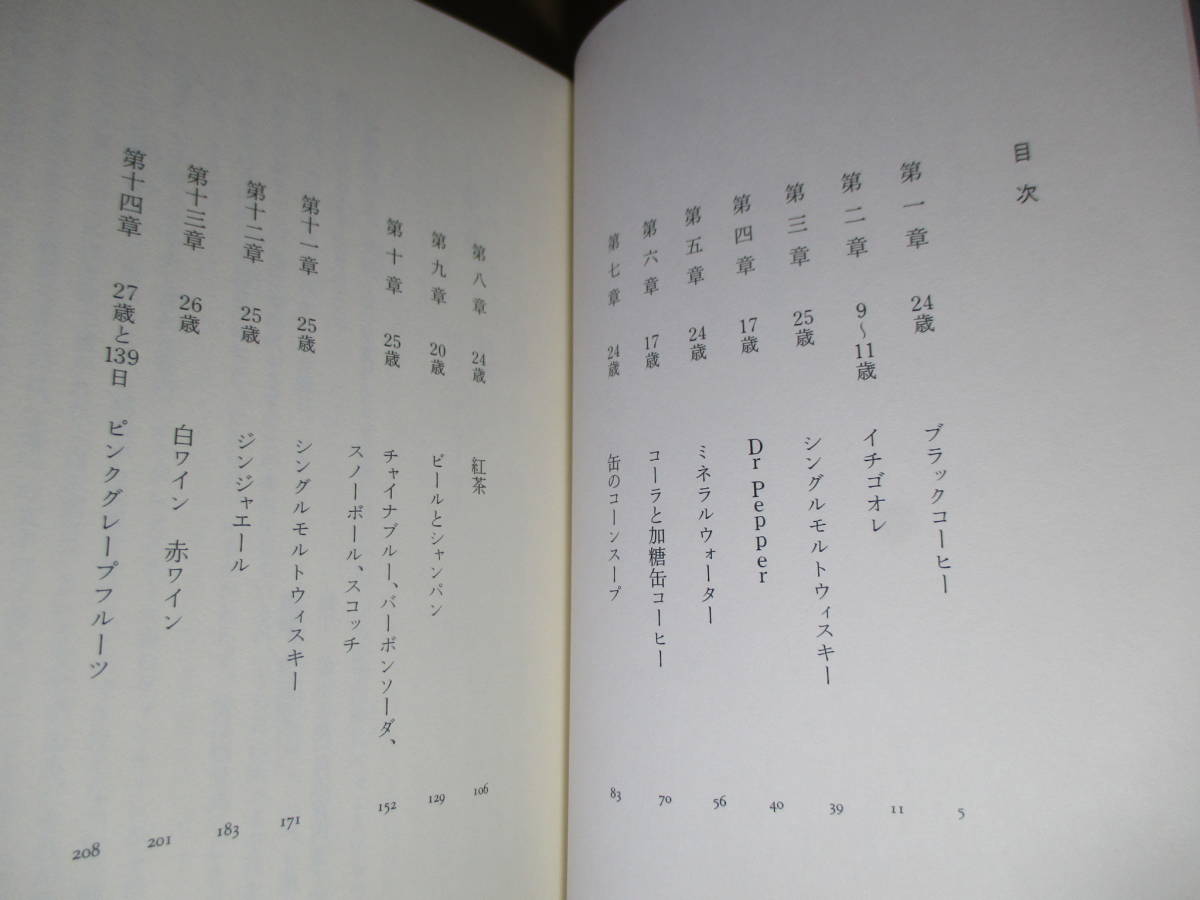 目次
第一章 24歳 ブラックコーヒー 5
第二章 9〜11歳 イチゴオレ 11
第三章 25歳 シングルモルトウィスキー 39
第四章 17歳 Dr Pepper 40
第五章 24歳 ミネラルウォーター 56
第六章 17歳 コーラと加糖缶コーヒー 70
第七章 24歳 缶のコーンスープ 83
第八章 24歳 紅茶 106
第九章 20歳 ビールとシャンパン 129
第十章 25歳 チャイナブルー、バーボンソーダ、 152
スノーボール、スコッチ
第十一章 25歳 シングルモルトウィスキー 171
第十二章 25歳 ジンジャエール 183
第十三章 26歳 白ワイン 赤ワイン 201
第十四章 27歳と139日 ピンクグレープフルーツ 208